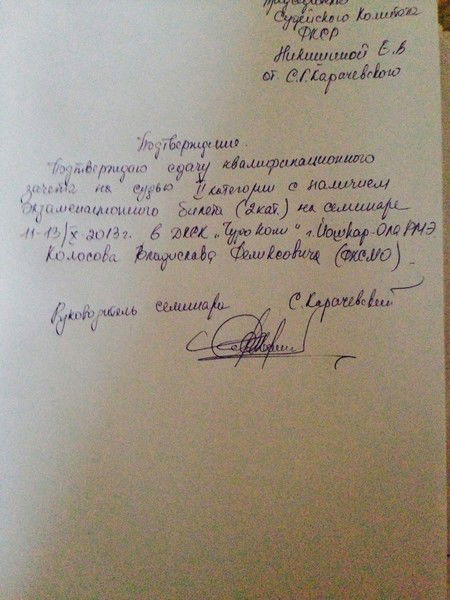 Судейского Комитета
ФКСР
Никишиной Е.В
от С.Г.Карачевского
Подтверждение.
Подтверждаю сдачу квалификационного
зачета на судью II категории с наличием
Экзаменационного билета (2кат.) на семинаре
11-13/X-2013г. в ДКСК "Туро коли" г.Йошкар-Ола РМЭ
Колосова Владислава Феликсовича (ФКСМО).
Руководитель семинара С.Карачевский